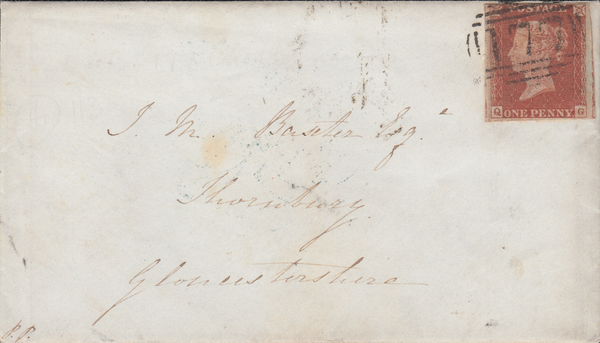 POSTAGE
177
Q G
ONE PENNY
J. M. Baxter Esqre
Thornbury
Gloucestershire
P.P.